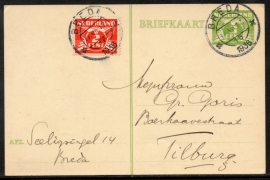 BRIEFKAART
BREDA
NEDERLAND
2
CENT
BREDA
Mejuffrouw
Gr. Goris
Boerhaavestraat
Tilburg.
AFZ. Seeligsingel 14
Breda